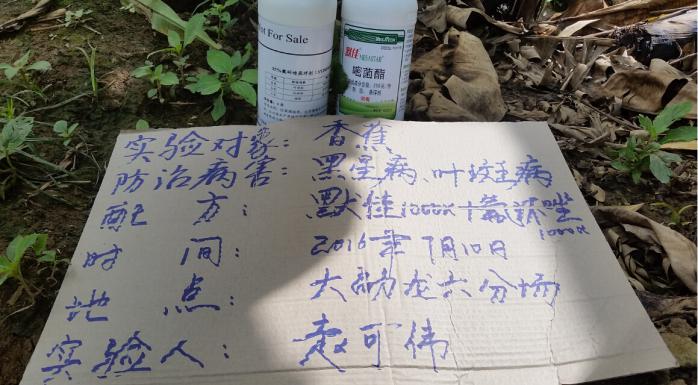 Not For Sale
MEIXITAR
嘧菌酯
实验对象：香蕉
防治病害：黑星病、叶斑病
配 方：默佳1000X+氟环唑
1000X
时 间：2016年7月10日
地 点：大勐龙六分场
实验人：赵可伟